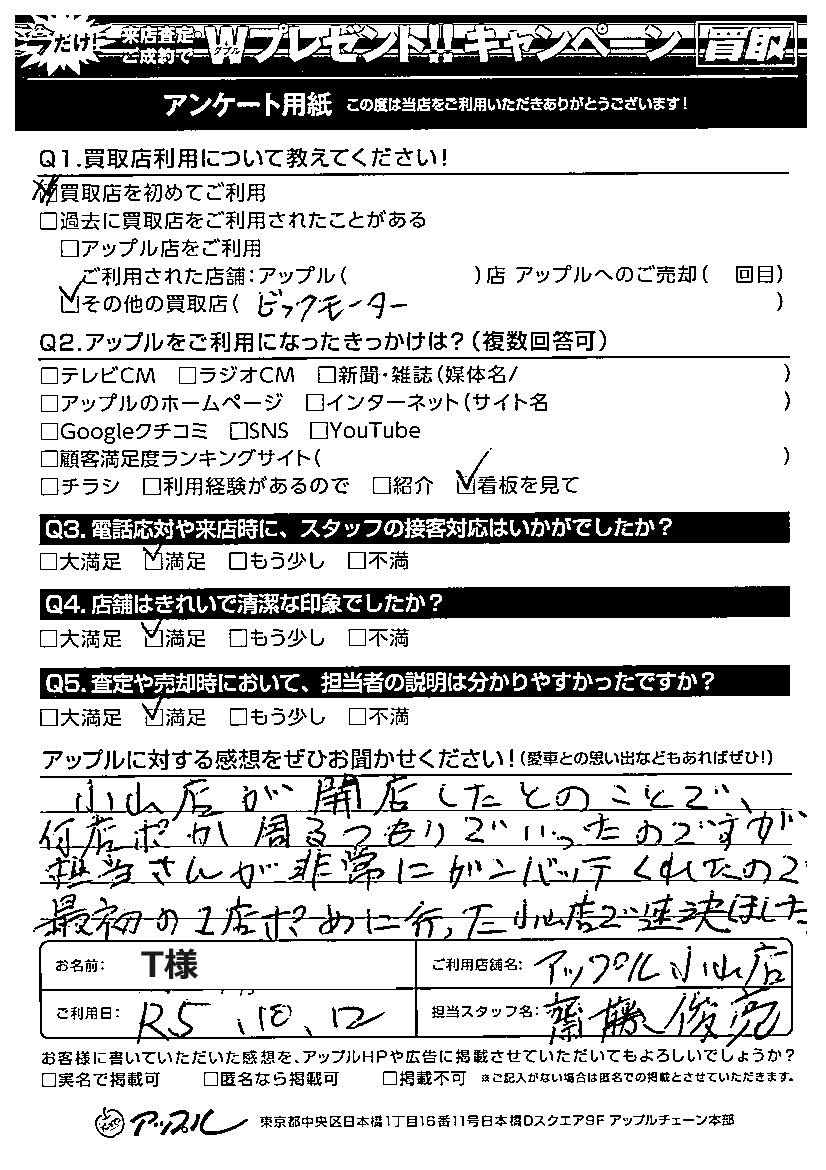 今だけ! 来店査定・ご成約で Wダブルプレゼント!!キャンペーン 買取
アンケート用紙 この度は当店をご利用いただきありがとうございます!
Q1.買取店利用について教えてください!
☑買取店を初めてご利用
□過去に買取店をご利用されたことがある
□アップル店をご利用
ご利用された店舗:アップル( )店 アップルへのご売却( 回目)
☑その他の買取店( ビックモーター )
Q2.アップルをご利用になったきっかけは?(複数回答可)
□テレビCM □ラジオCM □新聞・雑誌(媒体名/ )
□アップルのホームページ □インターネット(サイト名 )
□Googleクチコミ □SNS □YouTube
□顧客満足度ランキングサイト( )
□チラシ □利用経験があるので □紹介 ☑看板を見て
Q3.電話応対や来店時に、スタッフの接客対応はいかがでしたか?
□大満足 ☑満足 □もう少し □不満
Q4.店舗はきれいで清潔な印象でしたか?
□大満足 ☑満足 □もう少し □不満
Q5.査定や売却時において、担当者の説明は分かりやすかったですか?
□大満足 ☑満足 □もう少し □不満
アップルに対する感想をぜひお聞かせください!(愛車との思い出などもあればぜひ!)
小山店が開店したとのことで、
何店ポか周るつもりでいったのですが
担当さんが非常にガンバッテくれたので
最初の1店ポめに行った小山店で速決しました
お名前: T様 ご利用店舗名: アップル小山店
ご利用日: R5、10、12 担当スタッフ名: 齋藤俊亮
お客様に書いていただいた感想を、アップルHPや広告に掲載させていただいてもよろしいでしょうか?
□実名で掲載可 □匿名なら掲載可 □掲載不可 ※ご記入がない場合は匿名での掲載とさせていただきます。
アップル 東京都中央区日本橋1丁目16番11号日本橋Dスクエア9F アップルチェーン本部